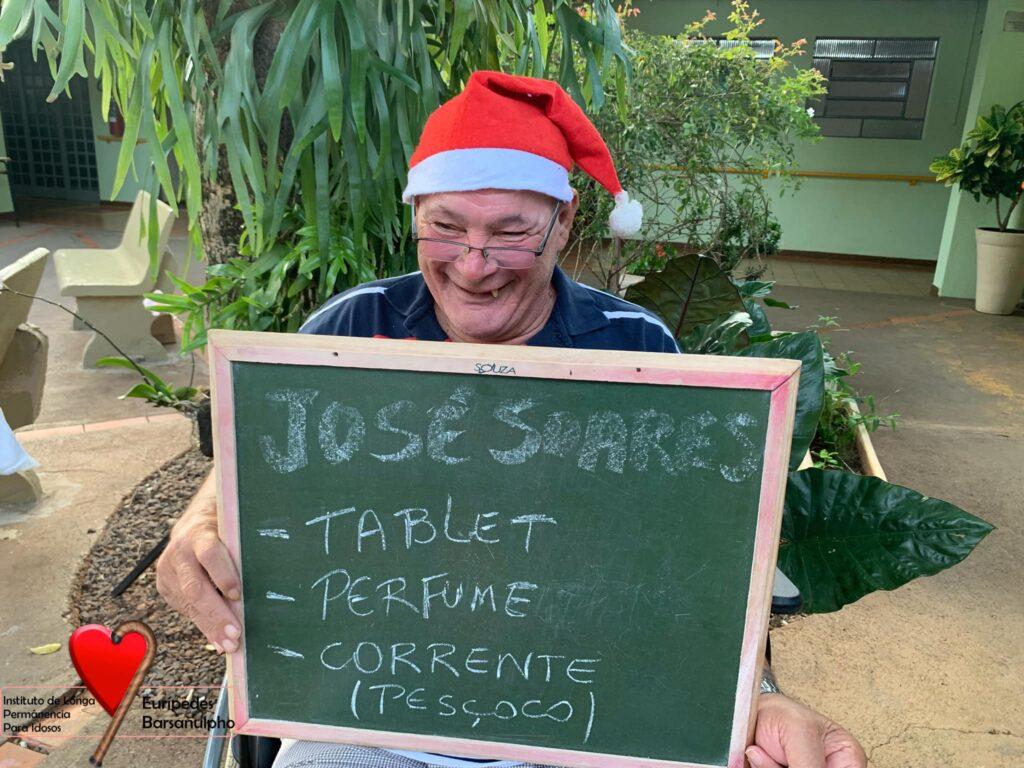 SOUZA
JOSÉ SOARES
- TABLET
- PERFUME
- CORRENTE
(PESÇOCO)
Instituto de Longa
Permânencia
Para Idosos
Eurípedes
Barsanulpho